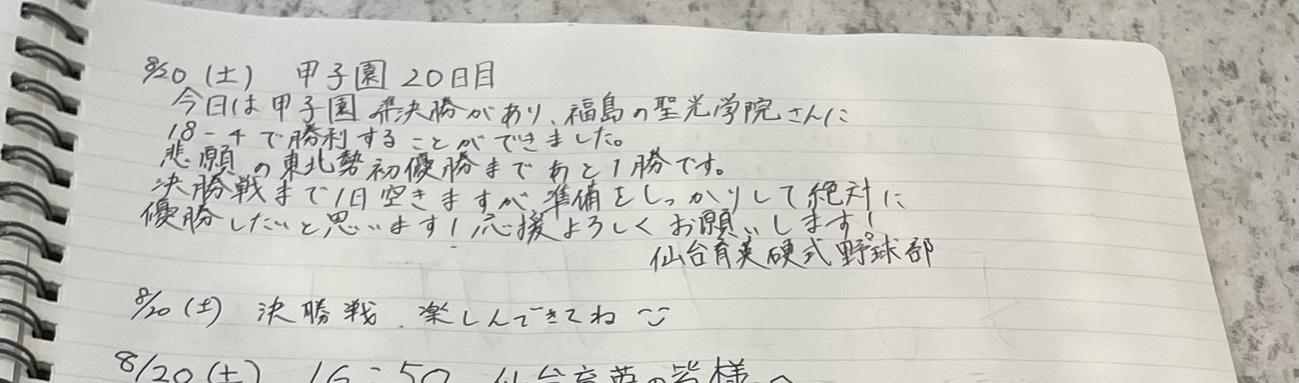 8/20(土) 甲子園 20日目
今日は甲子園準決勝があり、福島の聖光学院さんに
18-4で勝利することができました。
悲願の東北勢初優勝まであと1勝です。
決勝戦まで1日空きますが、準備をしっかりして絶対に
優勝したいと思います!応援よろしくお願いします!
仙台育英硬式野球部
8/20(土) 決勝戦、楽しんできてね
8/20(土) 16:50 仙台育英の皆様へ